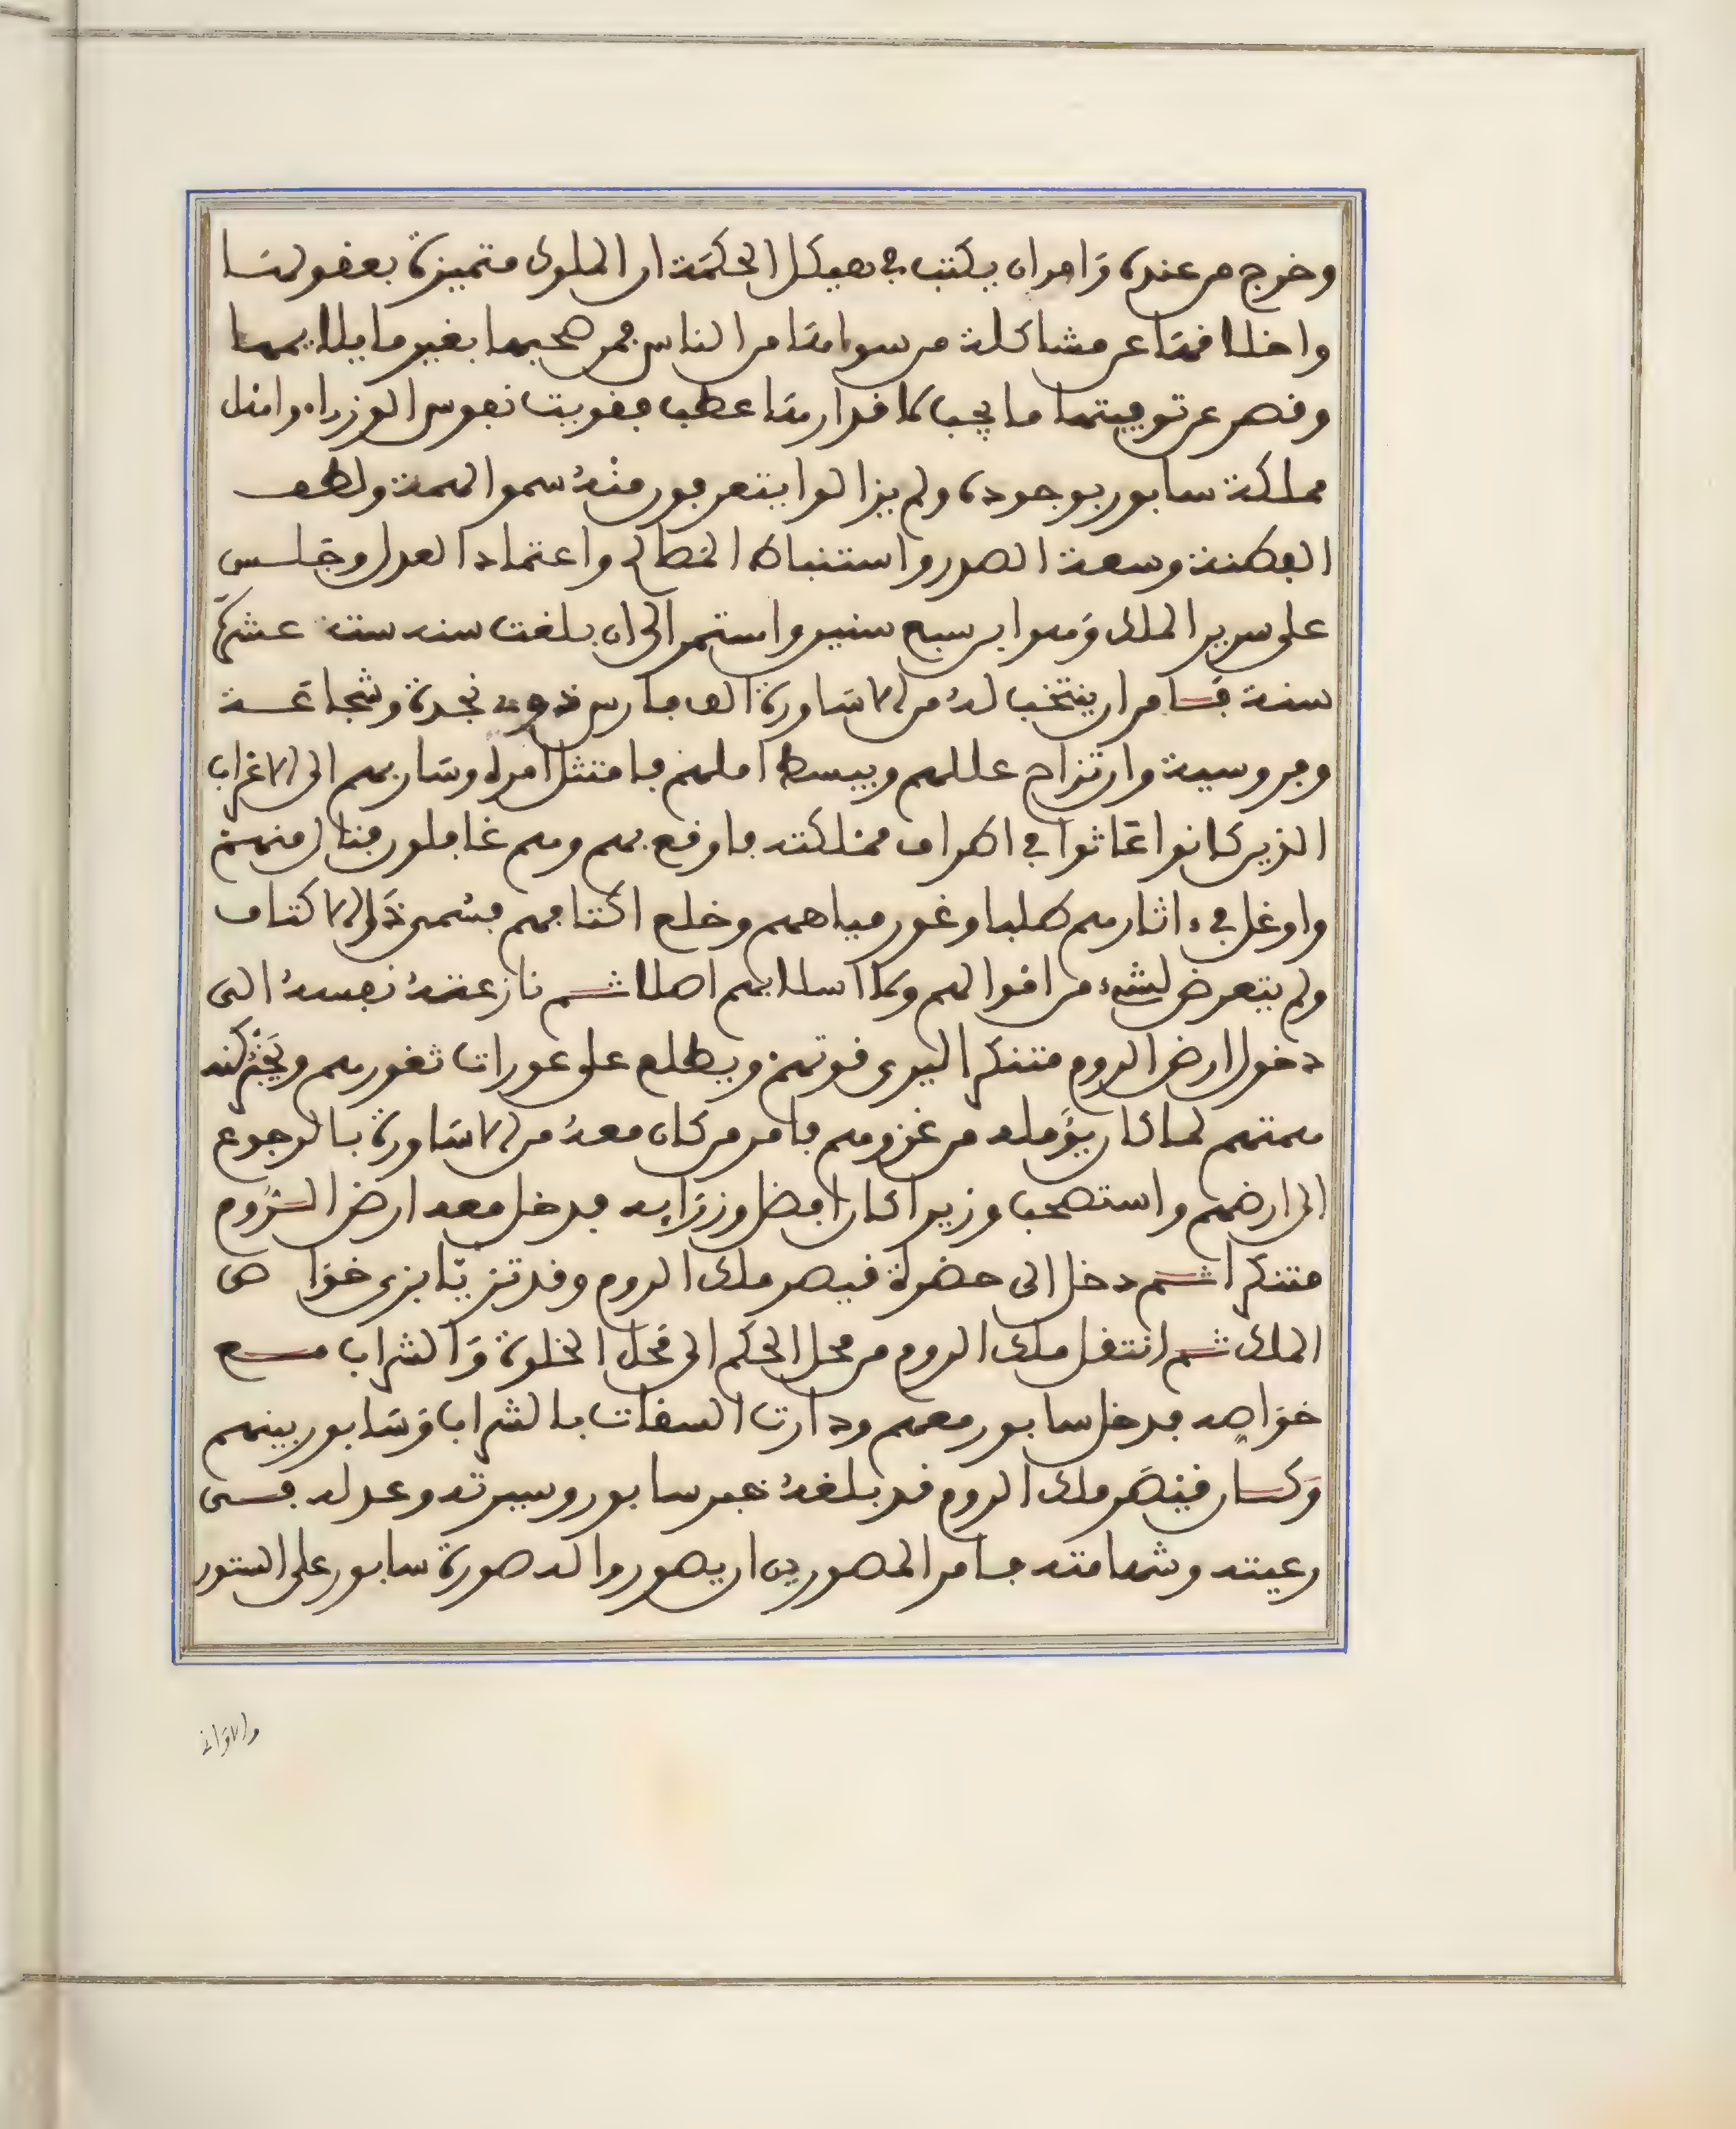 وخرج من عنده وامر ان يكتب في هيكل الحكمة ان الملوك متميزة بعقولها
واخلاقها عن مشاكلة من سواها من الناس فمن صحبها بغير ما يلايمها
وقصر عن توفيتها ما يجب لاقدارها عطب فقويت نفوس الوزراء وامنل
مملكة سابور بوجوده ولم يزالوا يتعرفون منه سمو الهمة ولطف
الفطنة وسعة الصدر واستنباط المصالح واعتماد العدل وجلس
على سرير الملك وهو ابن سبع سنين واستمر الى ان بلغت سنه ست عشرة
سنة فامر ان ينتخب له من الاساورة الف فارس ذوي نجدة وشجاعة
وفروسية وان تزاح عللهم ويبسط املهم فامتثل امره وسار بهم الى الاعراب
الذين كانوا عاثوا في اطراف مملكته فاوقع بهم وهم غافلون فنال منهم
واوغل في ءاثارهم طلبا وغور مياههم وخلع اكتافهم فسمي ذا الاكتاف
ولم يتعرض لشيء من اموالهم ولا اسلابهم اصلا ثم نازعته نفسه الى
دخول ارض الروم متنكرا ليرى قوتهم ويطلع على عورات ثغورهم ويختبر كنه
همتهم لما كان يؤمله من غزوهم فامر من كان معه من الاساورة بالرجوع
الى ارضهم واستصحب وزيرا كان افضل وزرايه فدخل معه ارض الروم
متنكرا ثم دخل الى حضرة قيصر ملك الروم وقد تزيا بزي خواص
الملك ثم انتقل ملك الروم من محل الحكم الى محل الخلوة والشراب مع
خواصه فدخل سابور معهم ودارت السقات بالشراب وسابور بينهم
وكان قيصر ملك الروم قد بلغه خبر سابور وسيرته وعدله في
رعيته وشهامته فامر المصورين ان يصوروا له صورة سابور على الستور
والاواني